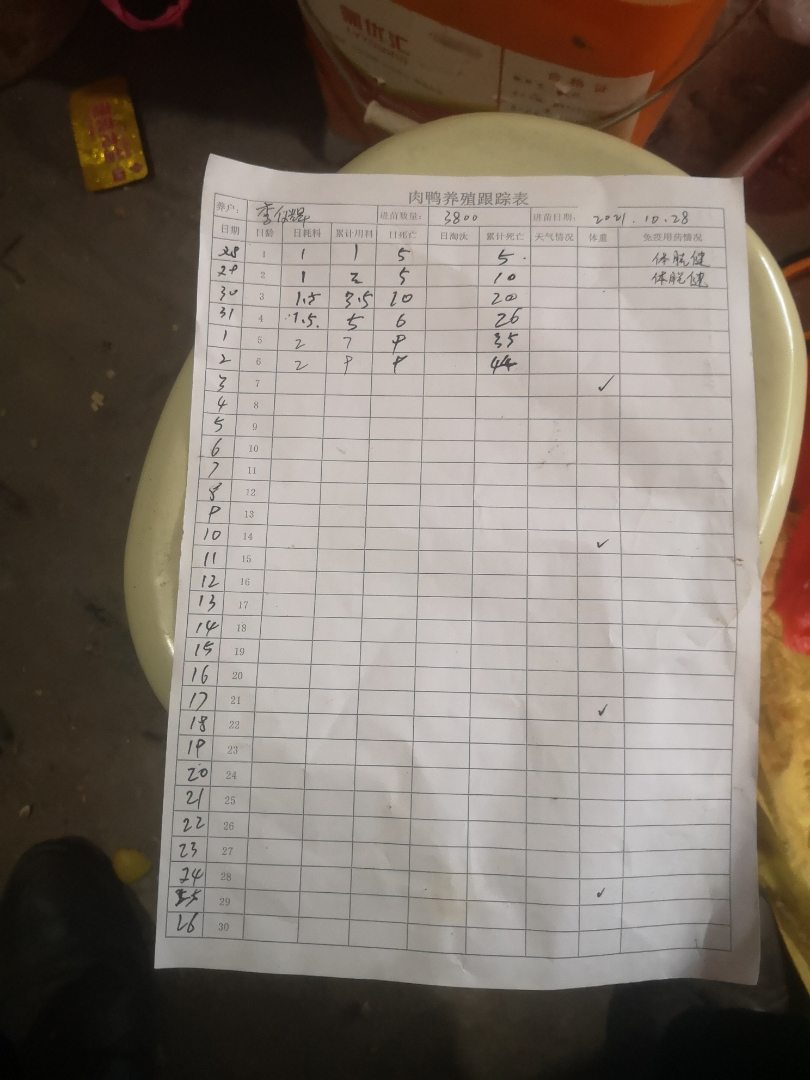 优汇
合格证
肉鸭养殖跟踪表
养户： 李 进苗数量： 3800 进苗日期： 2021.10.28
日期 日龄 日耗料 累计用料 日死亡 日淘汰 累计死亡 天气情况 体重 免疫用药情况
28 1 1 1 5 5. 体肽健
29 2 1 2 5 10 体肽健
30 3 1.5 3.5 10 20
31 4 1.5. 5 6 26
1 5 2 7 9 35
2 6 2 9 9 44
3 7 ✓
4 8
5 9
6 10
7 11
8 12
9 13
10 14 ✓
11 15
12 16
13 17
14 18
15 19
16 20
17 21 ✓
18 22
19 23
20 24
21 25
22 26
23 27
24 28
25 29 ✓
26 30